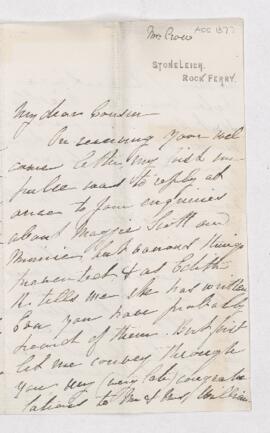 Mrs Crow
ACC 1377
STONELEIGH,
ROCK FERRY.
My dear Cousin
On receiving your wel
come letter my first im
pulse was to reply at
once to your enquiries
about Maggie Scott and
Minnie but various things
prevented & as Edith
R. tells me she has written
you you have probably
heard of them. But first
let me convey through
you my (very late) congratu
lations to Mr & Mrs William